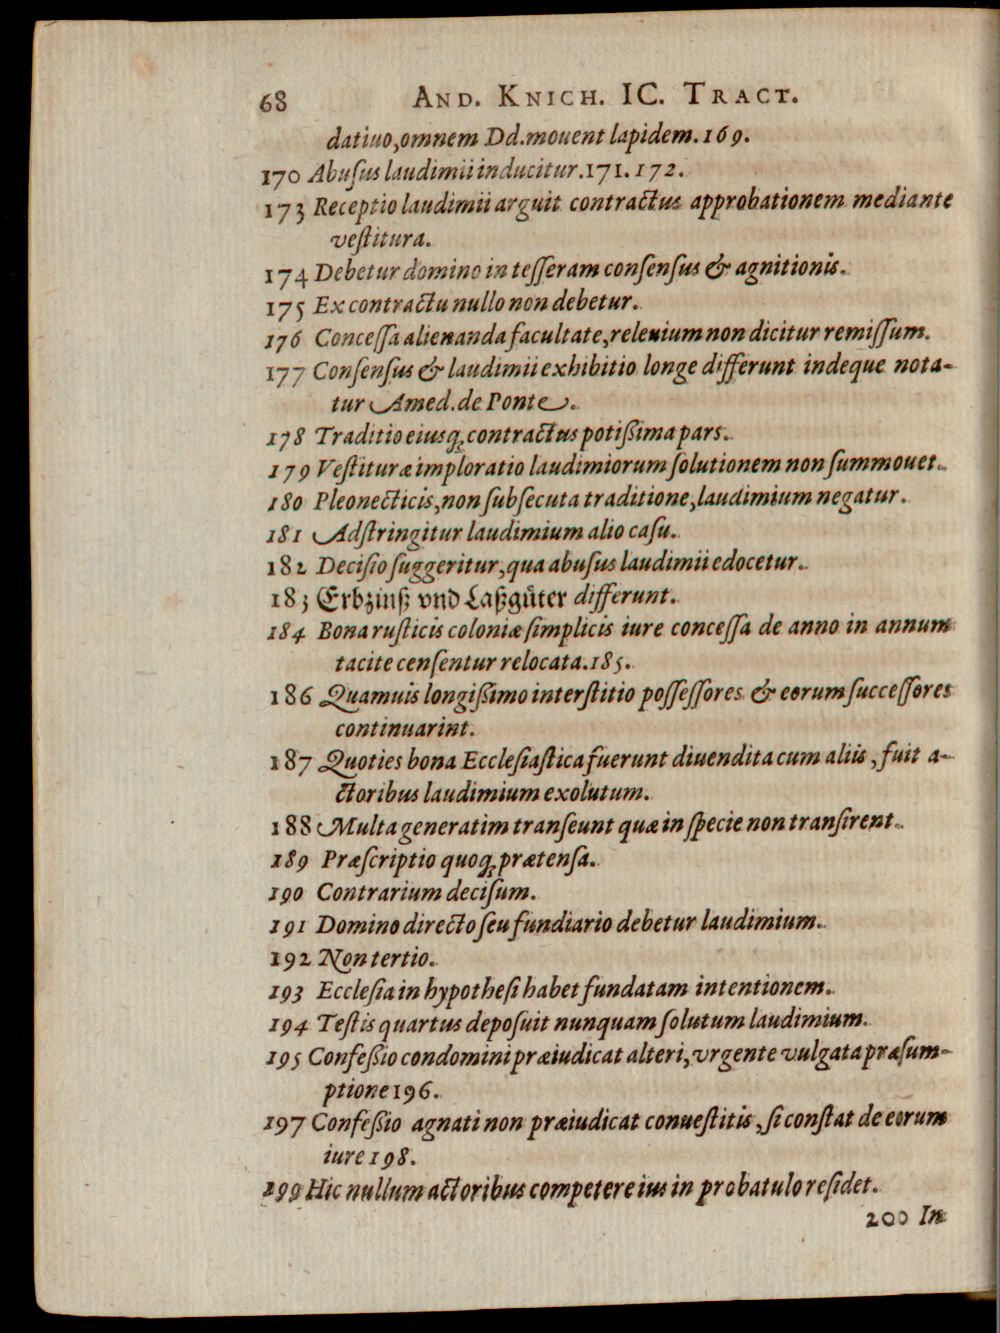 68 AND. KNICH. IC. TRACT.
datiuo, omnem Dd. mouent lapidem. 169.
170 Abuſus laudimii inducitur. 171. 172.
173 Receptio laudimii arguit contractus approbationem mediante
veſtitura.
174 Debetur domino in teſſeram conſenſus & agnitionis.
175 Ex contractu nullo non debetur.
176 Conceſſa alienanda facultate, releuium non dicitur remiſſum.
177 Conſenſus & laudimii exhibitio longe differunt indeque nota-
tur Amed. de Ponte.
178 Traditio eiusq; contractus potiſsima pars.
179 Veſtituræ imploratio laudimiorum ſolutionem non ſummouet.
180 Pleonecticis, non ſubſecuta traditione, laudimium negatur.
181 Adſtringitur laudimium alio caſu.
182 Deciſio ſuggeritur, qua abuſus laudimii edocetur.
183 Erbzinß vnd Laßguͤter differunt.
184 Bona ruſticis coloniæ ſimplicis iure conceſſa de anno in annum
tacite cenſentur relocata. 185.
186 Quamuis longiſsimo interſtitio poſſeſſores & eorum ſucceſſores
continuarint.
187 Quoties bona Eccleſiaſtica fuerunt diuendita cum aliis, fuit a-
ctoribus laudimium exolutum.
188 Multa generatim tranſeunt quæ in ſpecie non tranſirent.
189 Præſcriptio quoq; prætenſa.
190 Contrarium deciſum.
191 Domino directo ſeu fundiario debetur laudimium.
192 Non tertio.
193 Eccleſia in hypotheſi habet fundatam intentionem.
194 Teſtis quartus depoſuit nunquam ſolutum laudimium.
195 Confeſsio condomini præiudicat alteri, vrgente vulgata præſum-
ptione 196.
197 Confeſsio agnati non præiudicat conueſtitis, ſi conſtat de eorum
iure 198.
199 Hic nullum actoribus competere ius in probatulo reſidet.
200 In